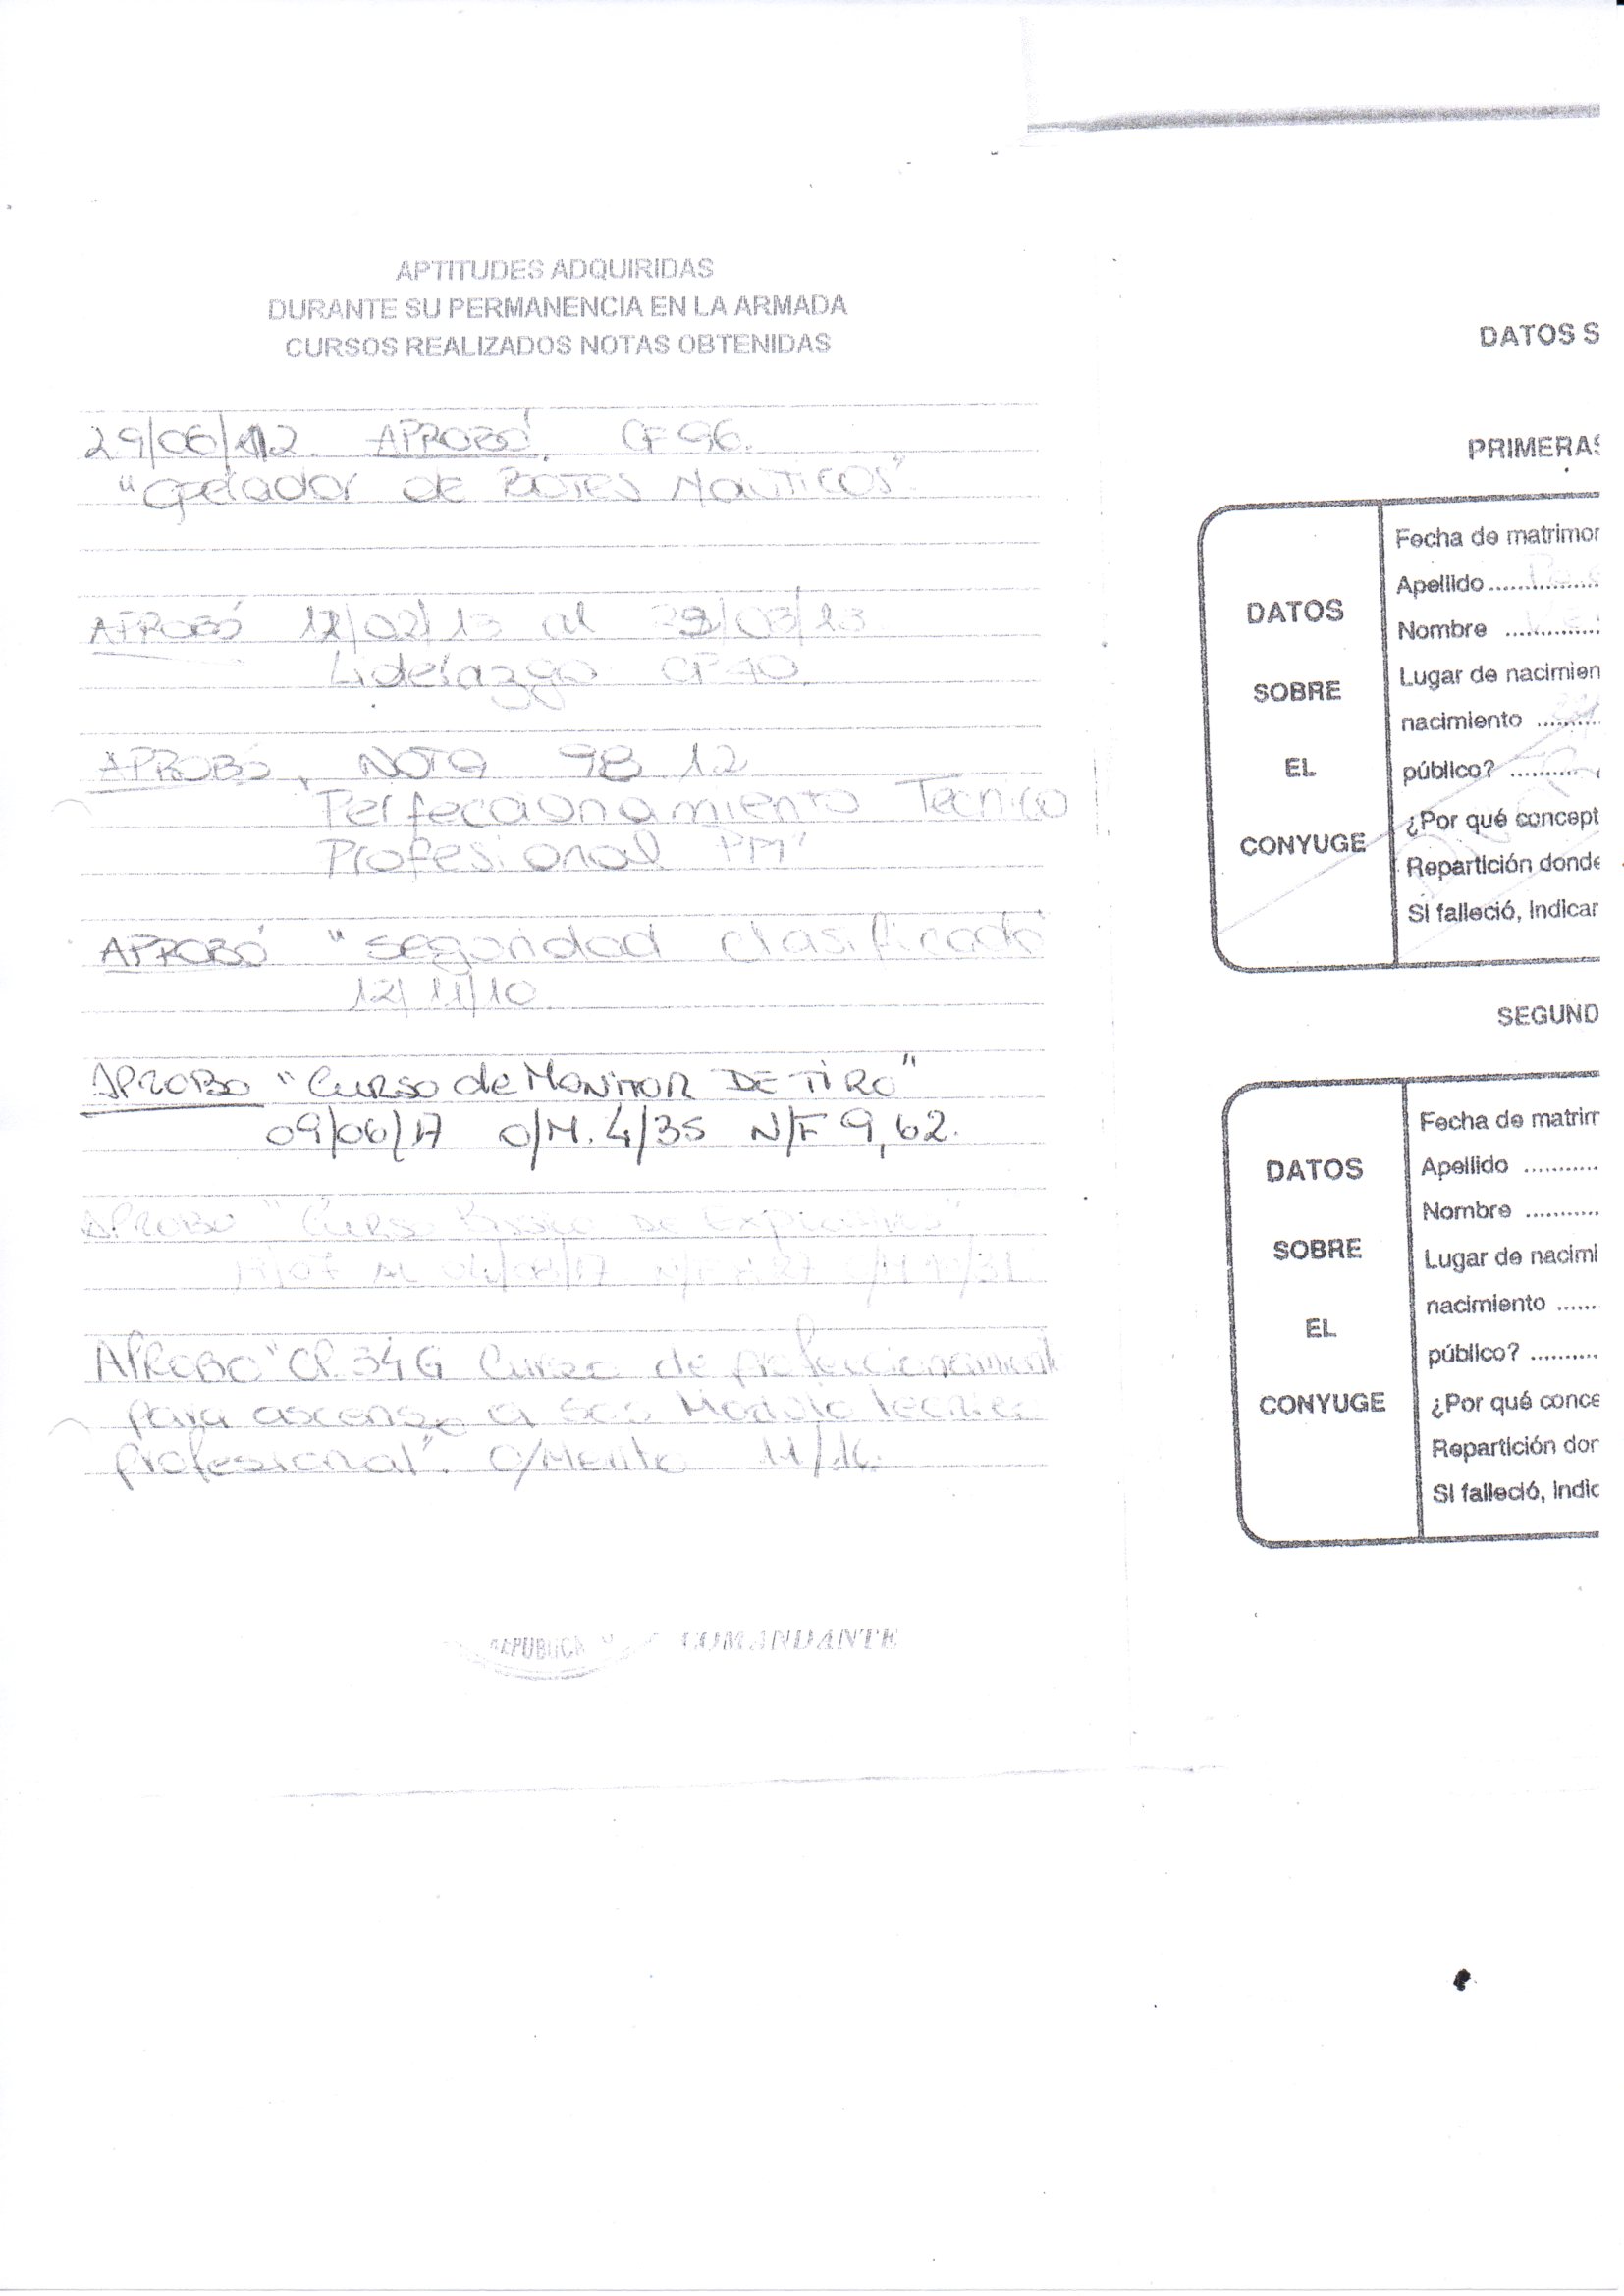 APTITUDES ADQUIRIDAS
DURANTE SU PERMANENCIA EN LA ARMADA
CURSOS REALIZADOS NOTAS OBTENIDAS
29/06/12. APROBÓ, CF 96.
"Operador de BOTES NAUTICOS".
APROBÓ 12/02/13 al /03/13
Liderazgo CF 40
APROBÓ, NOTA 98 12
"Perfeccionamiento Tecnico
Profesional PM"
APROBÓ "seguridad clasificado
12/11/10
APROBO "CURSO de MONITOR DE TIRO"
09/06/17 O/M. 4/35 N/F 9,62.
APROBO "Curso Basico de Explosivos"
APROBO "CP. 34 G Curso de perfeccionamient
para ascenso a Modulo tecnico
profesional". O/Merito 11/16.
REPUBLICA COMANDANTE
DATOS S
PRIMERAS
DATOS
SOBRE
EL
CONYUGE
Fecha de matrimon
Apellido
Nombre
Lugar de nacimien
nacimiento
público?
¿Por qué concept
Repartición donde
Si falleció, indicar
SEGUND
DATOS
SOBRE
EL
CONYUGE
Fecha de matrim
Apellido
Nombre
Lugar de nacimi
nacimiento
público?
¿Por qué conce
Repartición don
Si falleció, indic